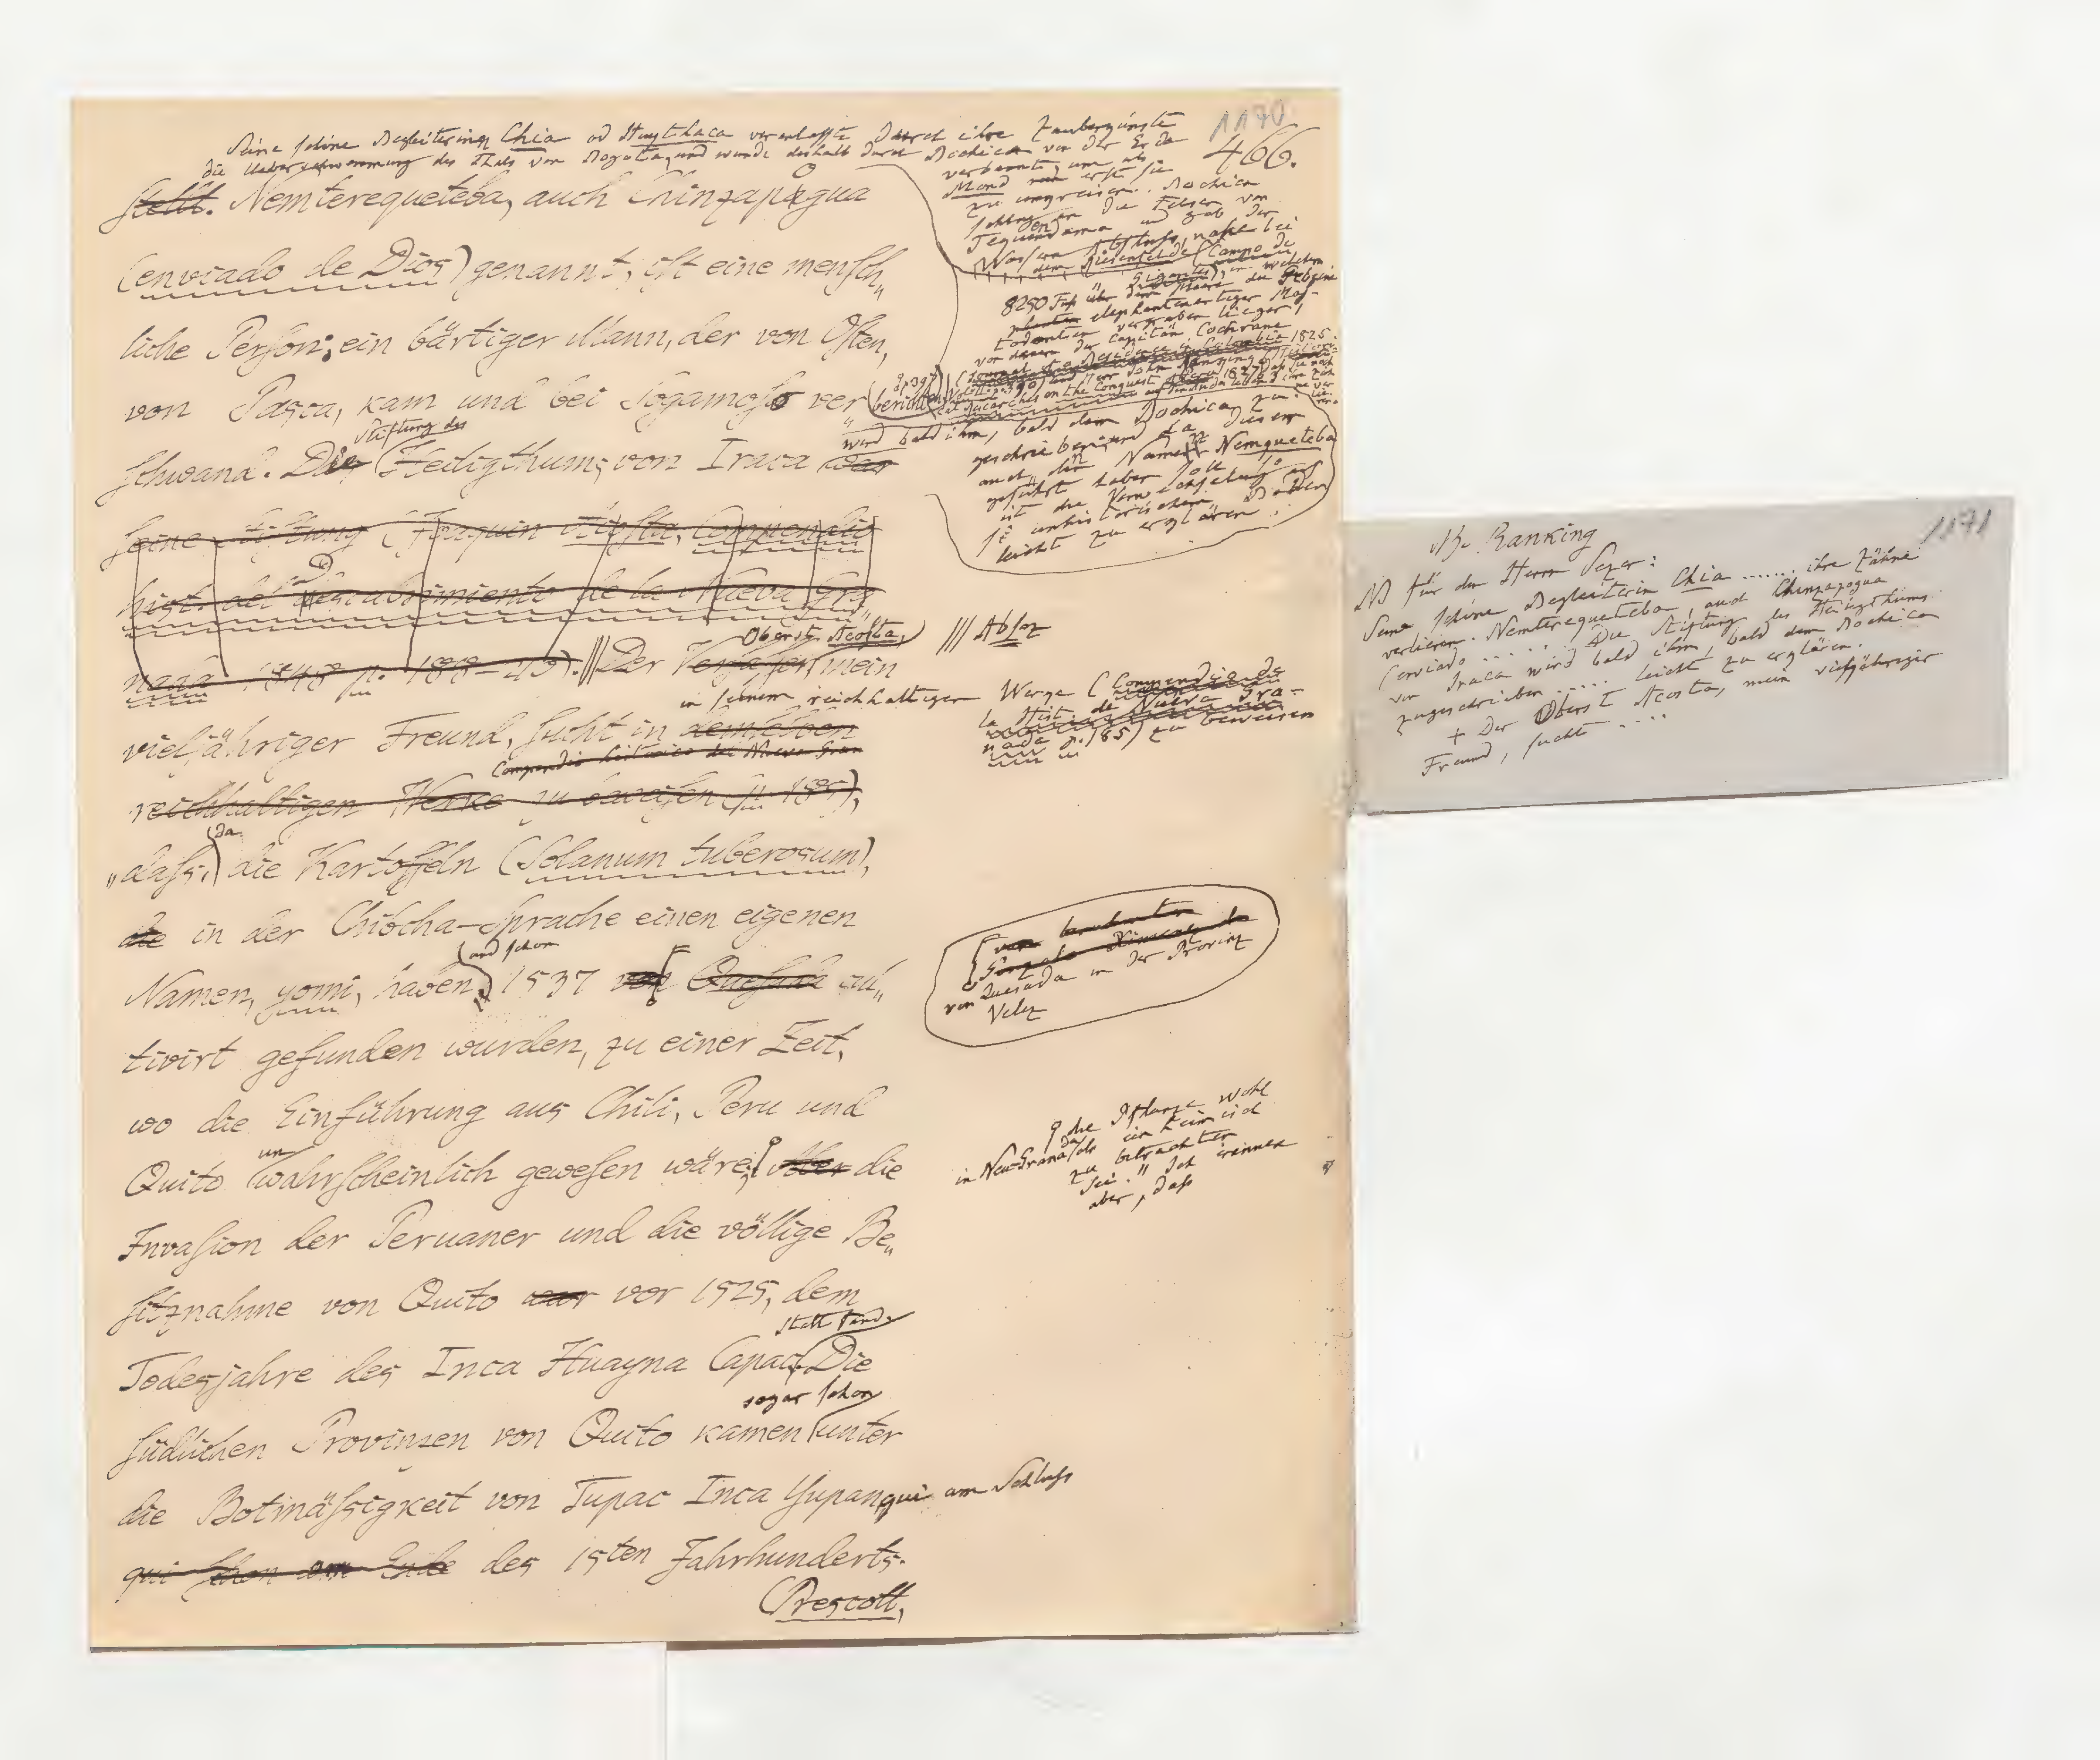 1170
466.
Seine schöne Begleiterin Chia od Huythaca veranlasste durch ihre Zauberkünste
die Ueberschwemmung des Thals von Bogota, und wurde deshalb durch Bochica von der Erde
verbannt, um als
Mond erst sie
zu umkreisen. Bochica
schlug an die Felsen von
Tequendama und gab der
Wassern Abfluss, nahe bei
dem Riesenfelde (Campo de
Gigantes), in welchem
8250 Fuß über dem Meere die Gebeine
elephantenartiger Mas-
todonten vergraben liegen,
von denen der Capitän Cochrane
(Journal of a Residence in Colombia 1825.
Vol. II p. 390) und Herr John Ranking (Historical
Researches on the Conquest of Peru 1827
p. 397) berichten
stellt. Nemterequeteba, auch Chinzapogua
(enviado de Dios) genannt, ist eine mensch„
liche Person; ein bärtiger Mann, der von Osten,
von Pasca, kam und bei Sogamoso ver„
schwand. Die Stiftung des Heiligthums von Iraca war
wird bald ihm, bald dem Bochica, zu„
geschrieben; und da dieser
auch den Namen Nemqueteba
geführt haben soll, so
ist die Verwechselung auf
so unhistorischem Boden
leicht zu erklären.
seine Stiftung (Joaquin Acosta, Compendio
hist. del descubrimiento de la Nueva Gra„
nada 1848 p. 188
Der Verfasser, Oberst Acosta, mein
/// Absaz
vieljähriger Freund, sucht in demselben
in seinem reichhaltigen Werke (Compendio de
la Hist. de Nueva Gra-
nada p. 185) zu beweisen
Compendio historico de Nueva Gran
reichhaltigen Werke zu beweisen (p. 185),
„dass, da die Kartoffeln (Solanum tuberosum),
die in der Chibcha-Sprache einen eigenen
Namen, yomi, haben und schon 1537 von Quesada cul„
(vom berühmten
Gonzalo Ximenez de
von Quesada in der Provinz
Velez
tivirt gefunden wurden, zu einer Zeit,
wo die Einführung aus Chili, Peru und
Quito unwahrscheinlich gewesen wäre, über die
die Pflanze wohl
in Neu-Granada als einheimisch
zu betrachten
sei." Ich erinnere
aber, dass
Invasion der Peruaner und die völlige Be„
sitznahme von Quito war vor 1525, dem
Todesjahre des Inca Huayna Capac, statt fand. Die
südlichen Provinzen von Quito kamen sogar schon unter
die Botmässigkeit von Tupac Inca Yupanqui am Schluss
qui schon am Ende des 15ten Jahrhunderts.
(Prescott,
1171
Ranking
NB Für den Herrn Sezer:
Seine schöne Begleiterin Chia ...... ihre Zähne
verlieren. Nemterequeteba, auch Chinzapogua
(enviado ..... Die Stiftung des Heiligthums
von Iraca wird bald ihm, bald dem Bochica
zugeschrieben ..... leicht zu erklären.
+ Der Oberst Acosta, mein vieljähriger
Freund, sucht ....